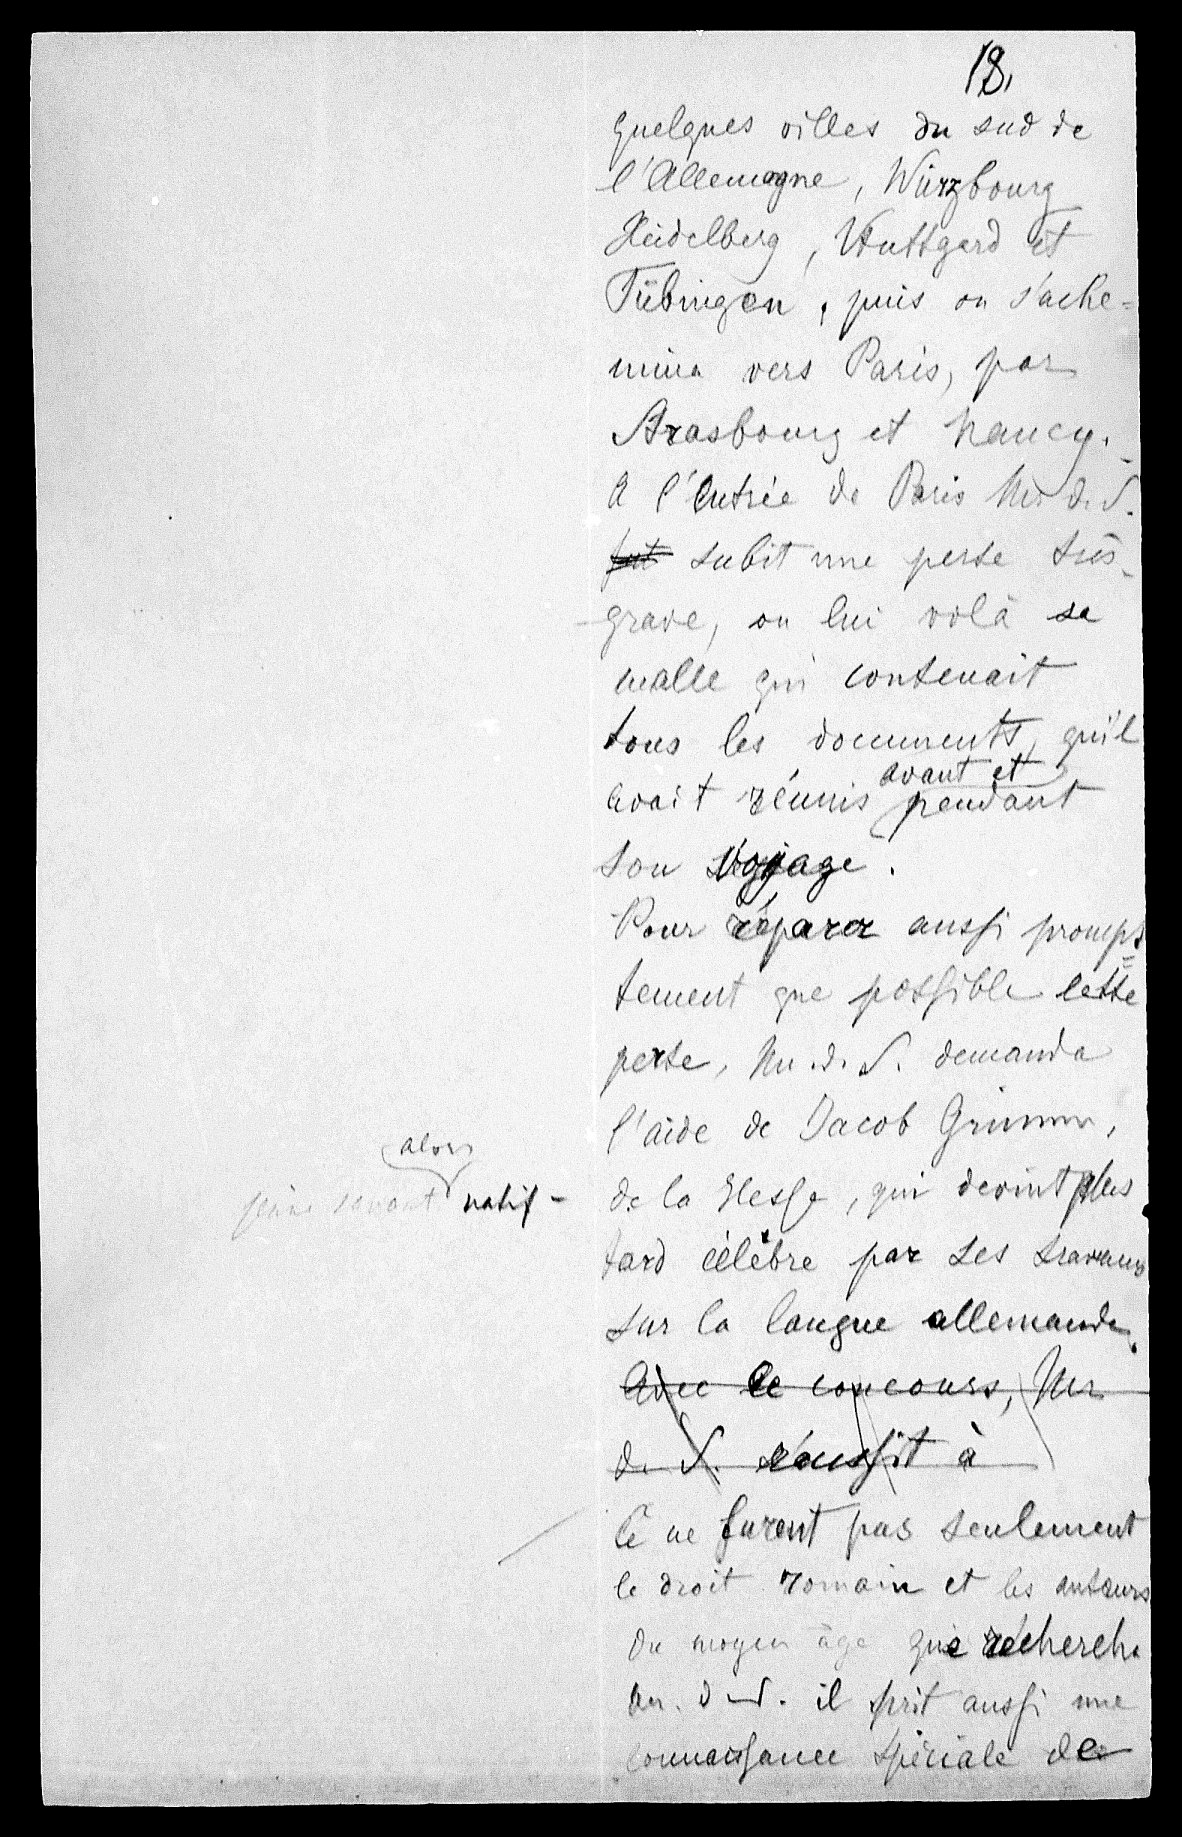 18.
quelques villes du sud de
l'Allemagne, Würzbourg
Heidelberg, Stuttgard et
Tübingen, puis on s'ache-
mina vers Paris, par
Strasbourg et Nancy.
A l'entrée de Paris Mr d. S.
fut subit une perte très-
grave, on lui volà sa
malle qui contenait
tous les documents, qu'il
avant et
avait réunis pendant
son voyage.
Pour réparer aussi promp=
tement que possible cette
perte, Mr. d. S. demanda
l'aide de Jacob Grimm,
alors
jeune savant natif -
de la Hesse, qui devint plus
tard célèbre par ses travaux
sur la langue allemande.
Avec le concours, Mr
d. S. réussit à
Ce ne furent pas seulement
le droit romain et les auteurs
du moyen âge que recherche
Mr. d. S. il prit aussi une
connaissance spéciale de